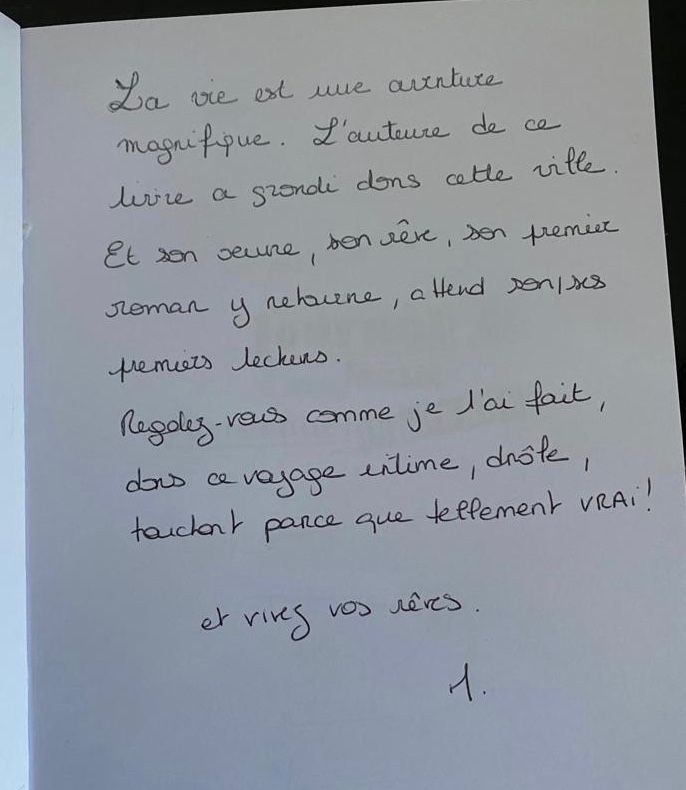 La vie est une aventure
magnifique. L'auteure de ce
livre a grandi dans cette ville.
Et son oeuvre, son rêve, son premier
roman y retourne, attend son/ses
premiers lecteurs.
Regalez-vous comme je l'ai fait,
dans ce voyage intime, drôle,
touchant parce que tellement VRAi!
et vivez vos rêves.